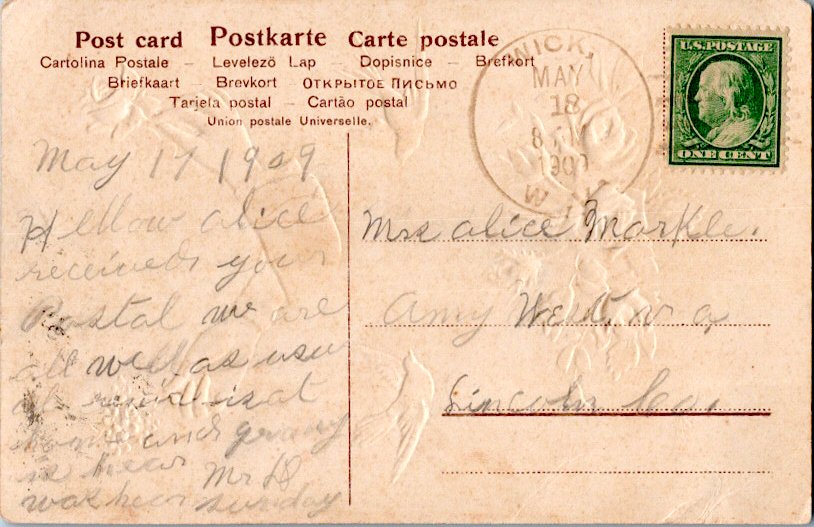 Post card Postkarte Carte postale
Cartolina Postale – Levelező Lap – Dopisnice – Brefkort
Briefkaart – Brevkort – Открытое Письмо
Tarjeta postal – Cartão postal
Union postale Universelle.
WICK,
MAY
18
8 AM
1909
W. V
U.S. POSTAGE
ONE CENT
May 17 1909
Hellow alice
received your
Postal we are
all well as usu
al is at
home and grany
is hear Mr D
was hear sunday
Mrs alice Markle.
Amy West. v a
Lincoln Co.